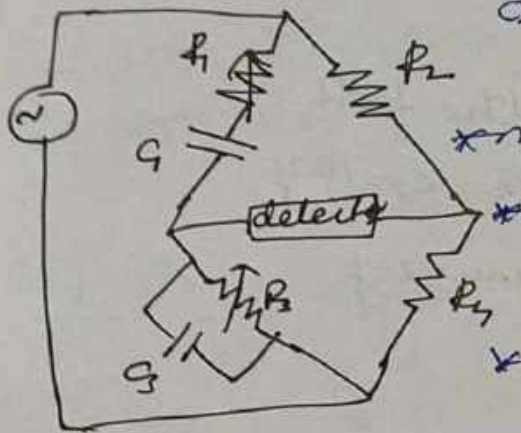 R1
R2
C1
detector
R3
C3
R4